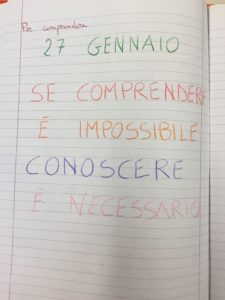 Per comprendere
27 GENNAIO
SE COMPRENDERE
È IMPOSSIBILE
CONOSCERE
È NECESSARIO